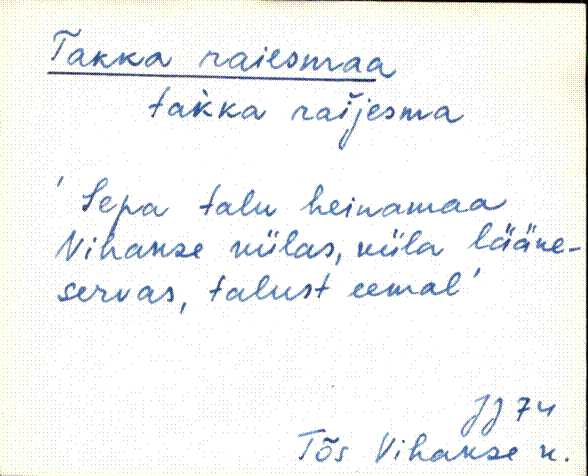 Takka raiesmaa
takka raijesma
'Sepa talu heinamaa
Vihakse külas, küla lääne-
servas, talust eemal'
JJ 74
Tõs Vihakse k.